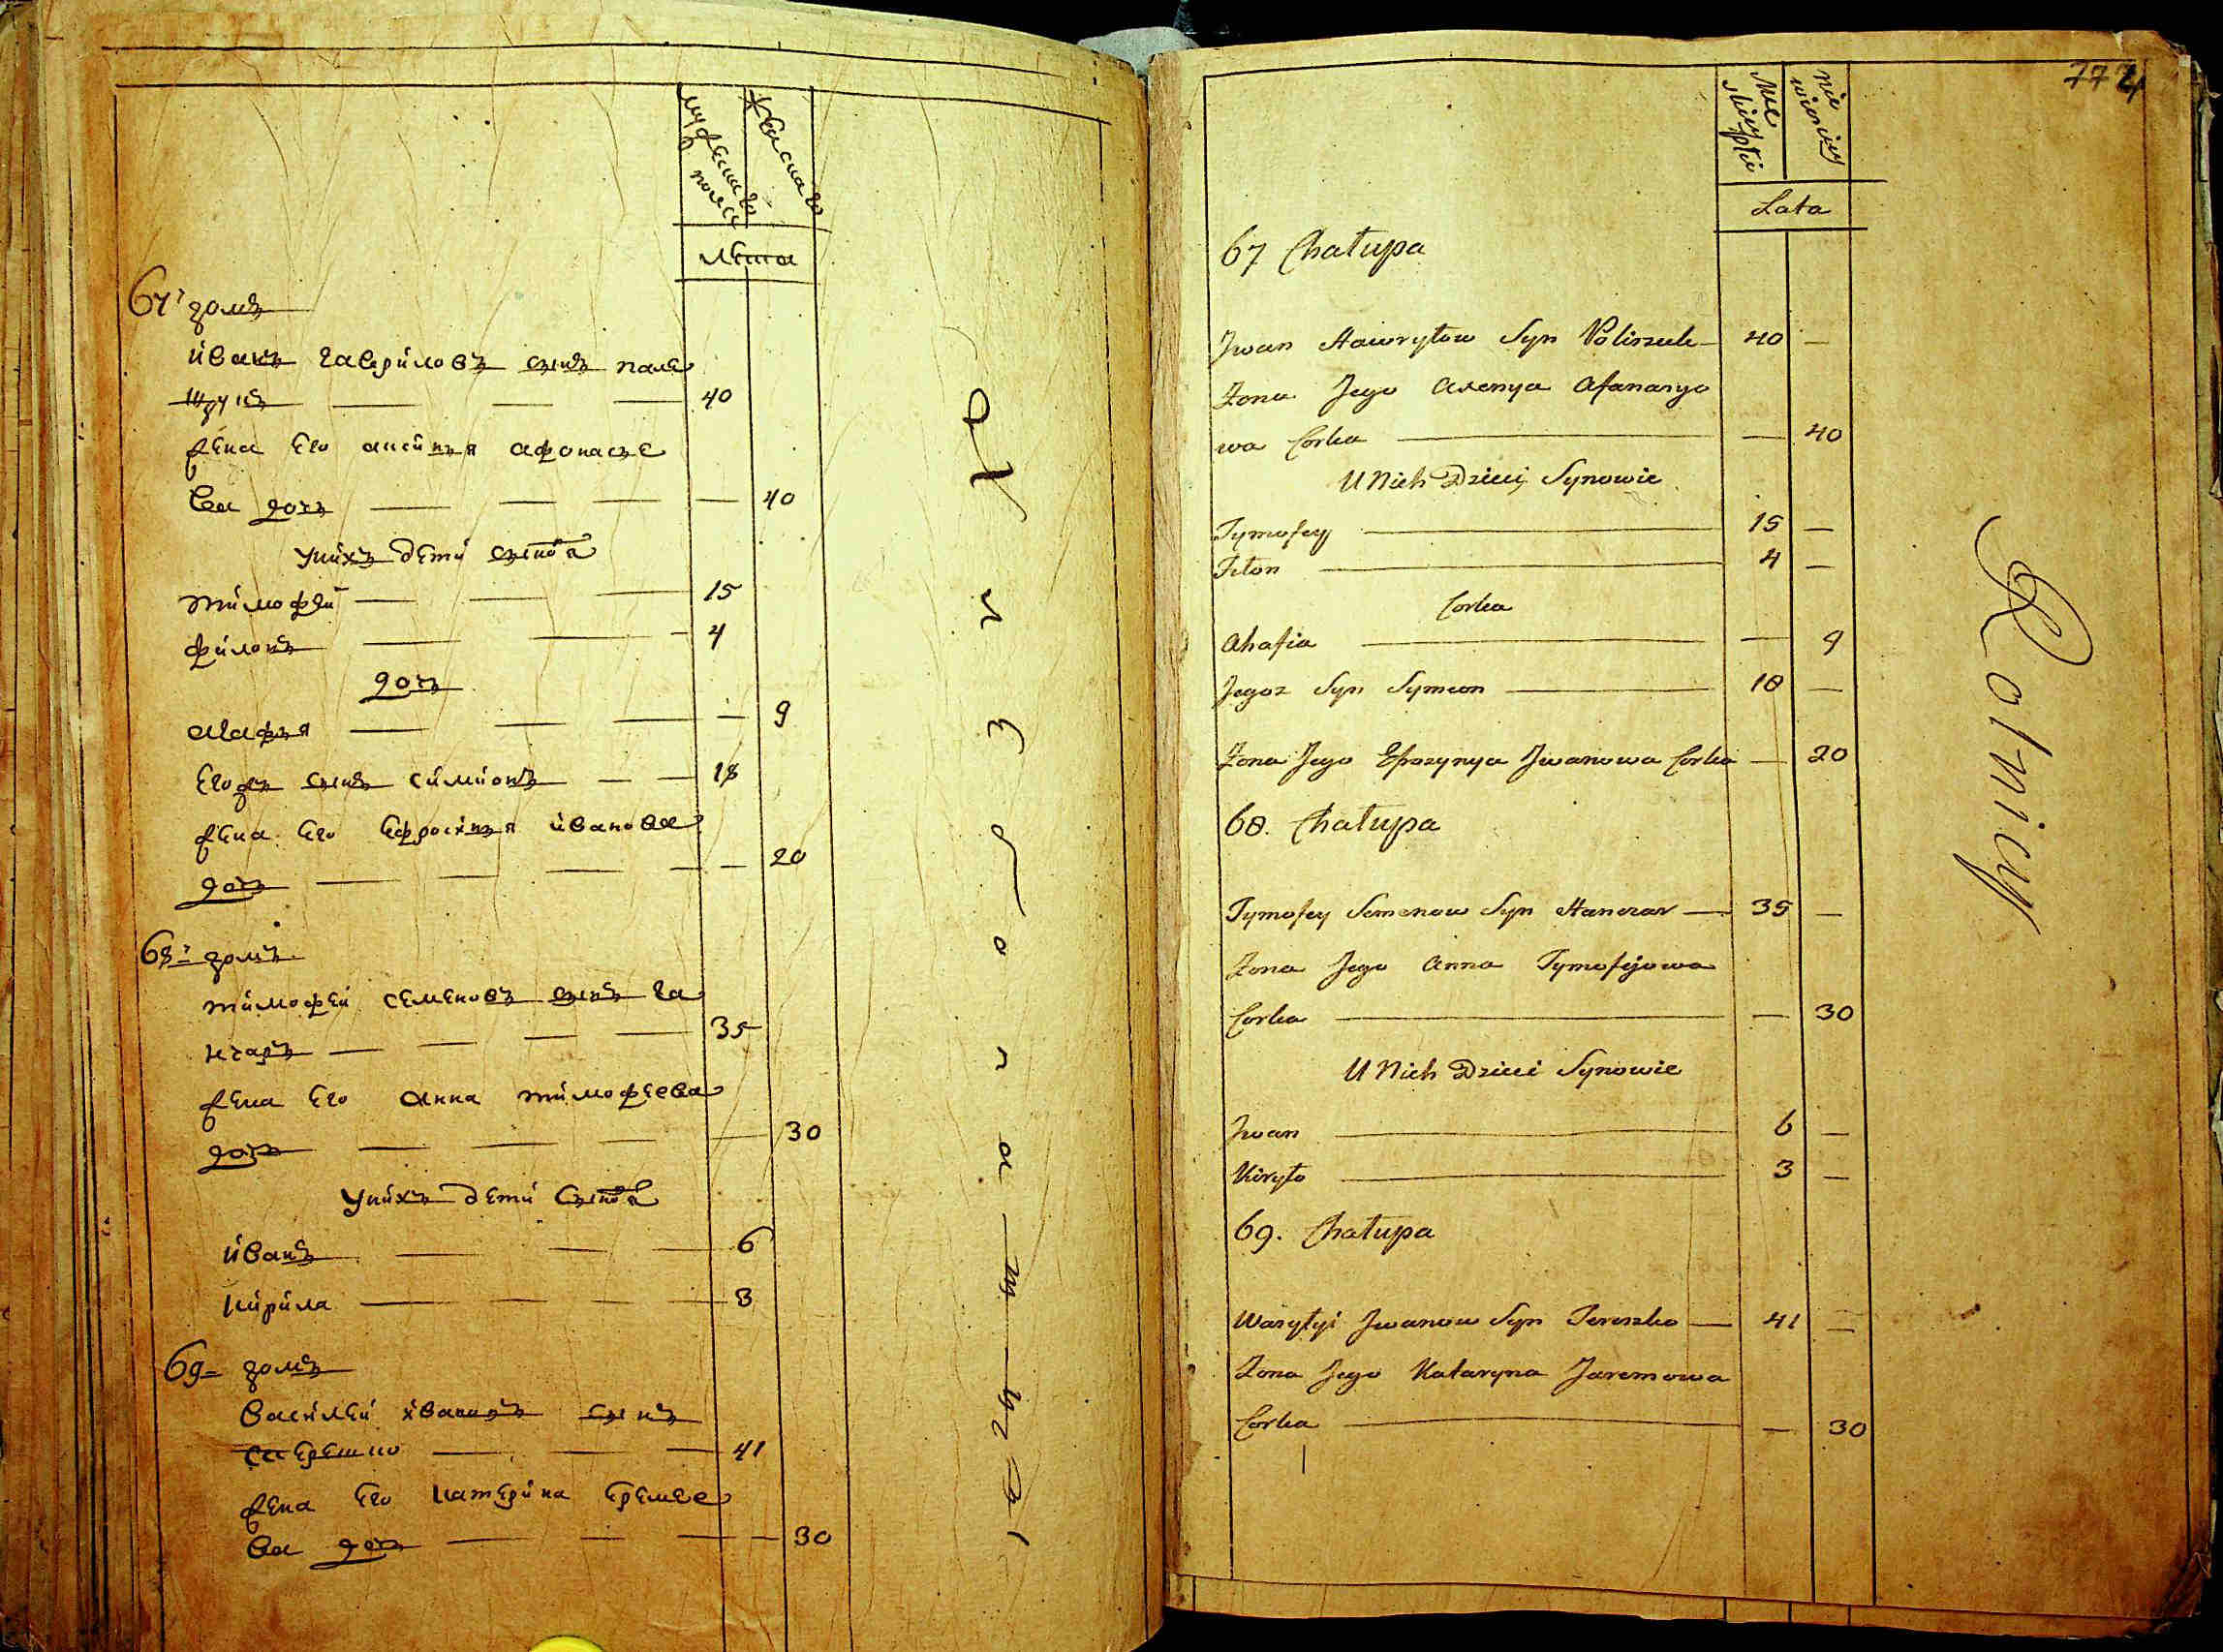 мужеска
полу
женска
лета
67 домъ
иванъ гавриловъ сынъ поле
щукъ 40
жена его аксинья афонасье
ва дочь — 40
унихъ дети сынова
тимофей 15
филонъ 4
дочь
агафья — 9
Егоръ сынъ симионъ 18
жена его Ефросинья иванова
дочь — 20
68 домъ
тимофей семеновъ сынъ га
нчаръ 35
жена его анна тимофеева
дочь — 30
унихъ дети сынова
иванъ 6
кирила 3
69 домъ
василей ивановъ сынъ
терешко 41
жена его катерина Ереме
ва дочь — 30
774
Lata
67 Chałupa
Jwan Hawryłow Syn Poliszuk 40 —
Żona Jego Axenya Afanasyo
wa Corka — 40
U Nich Dzieci Synowie
Tymofey 15 —
Filon 4 —
Corka
Ahafia — 9
Jegoz Syn Symeon 18 —
Żona Jego Efrozynya Jwanowa Corka — 20
68. Chałupa
Tymofey Semenow Syn Hanczar 35 —
Żona Jego Anna Tymofijowa
Corka — 30
U Nich Dzieci Synowie
Jwan 6 —
Kiryło 3 —
69. Chałupa
Wasylyi Jwanow Syn Tereszko 41 —
Żona Jego Kataryna Jaremowa
Corka — 30
Rolnicy